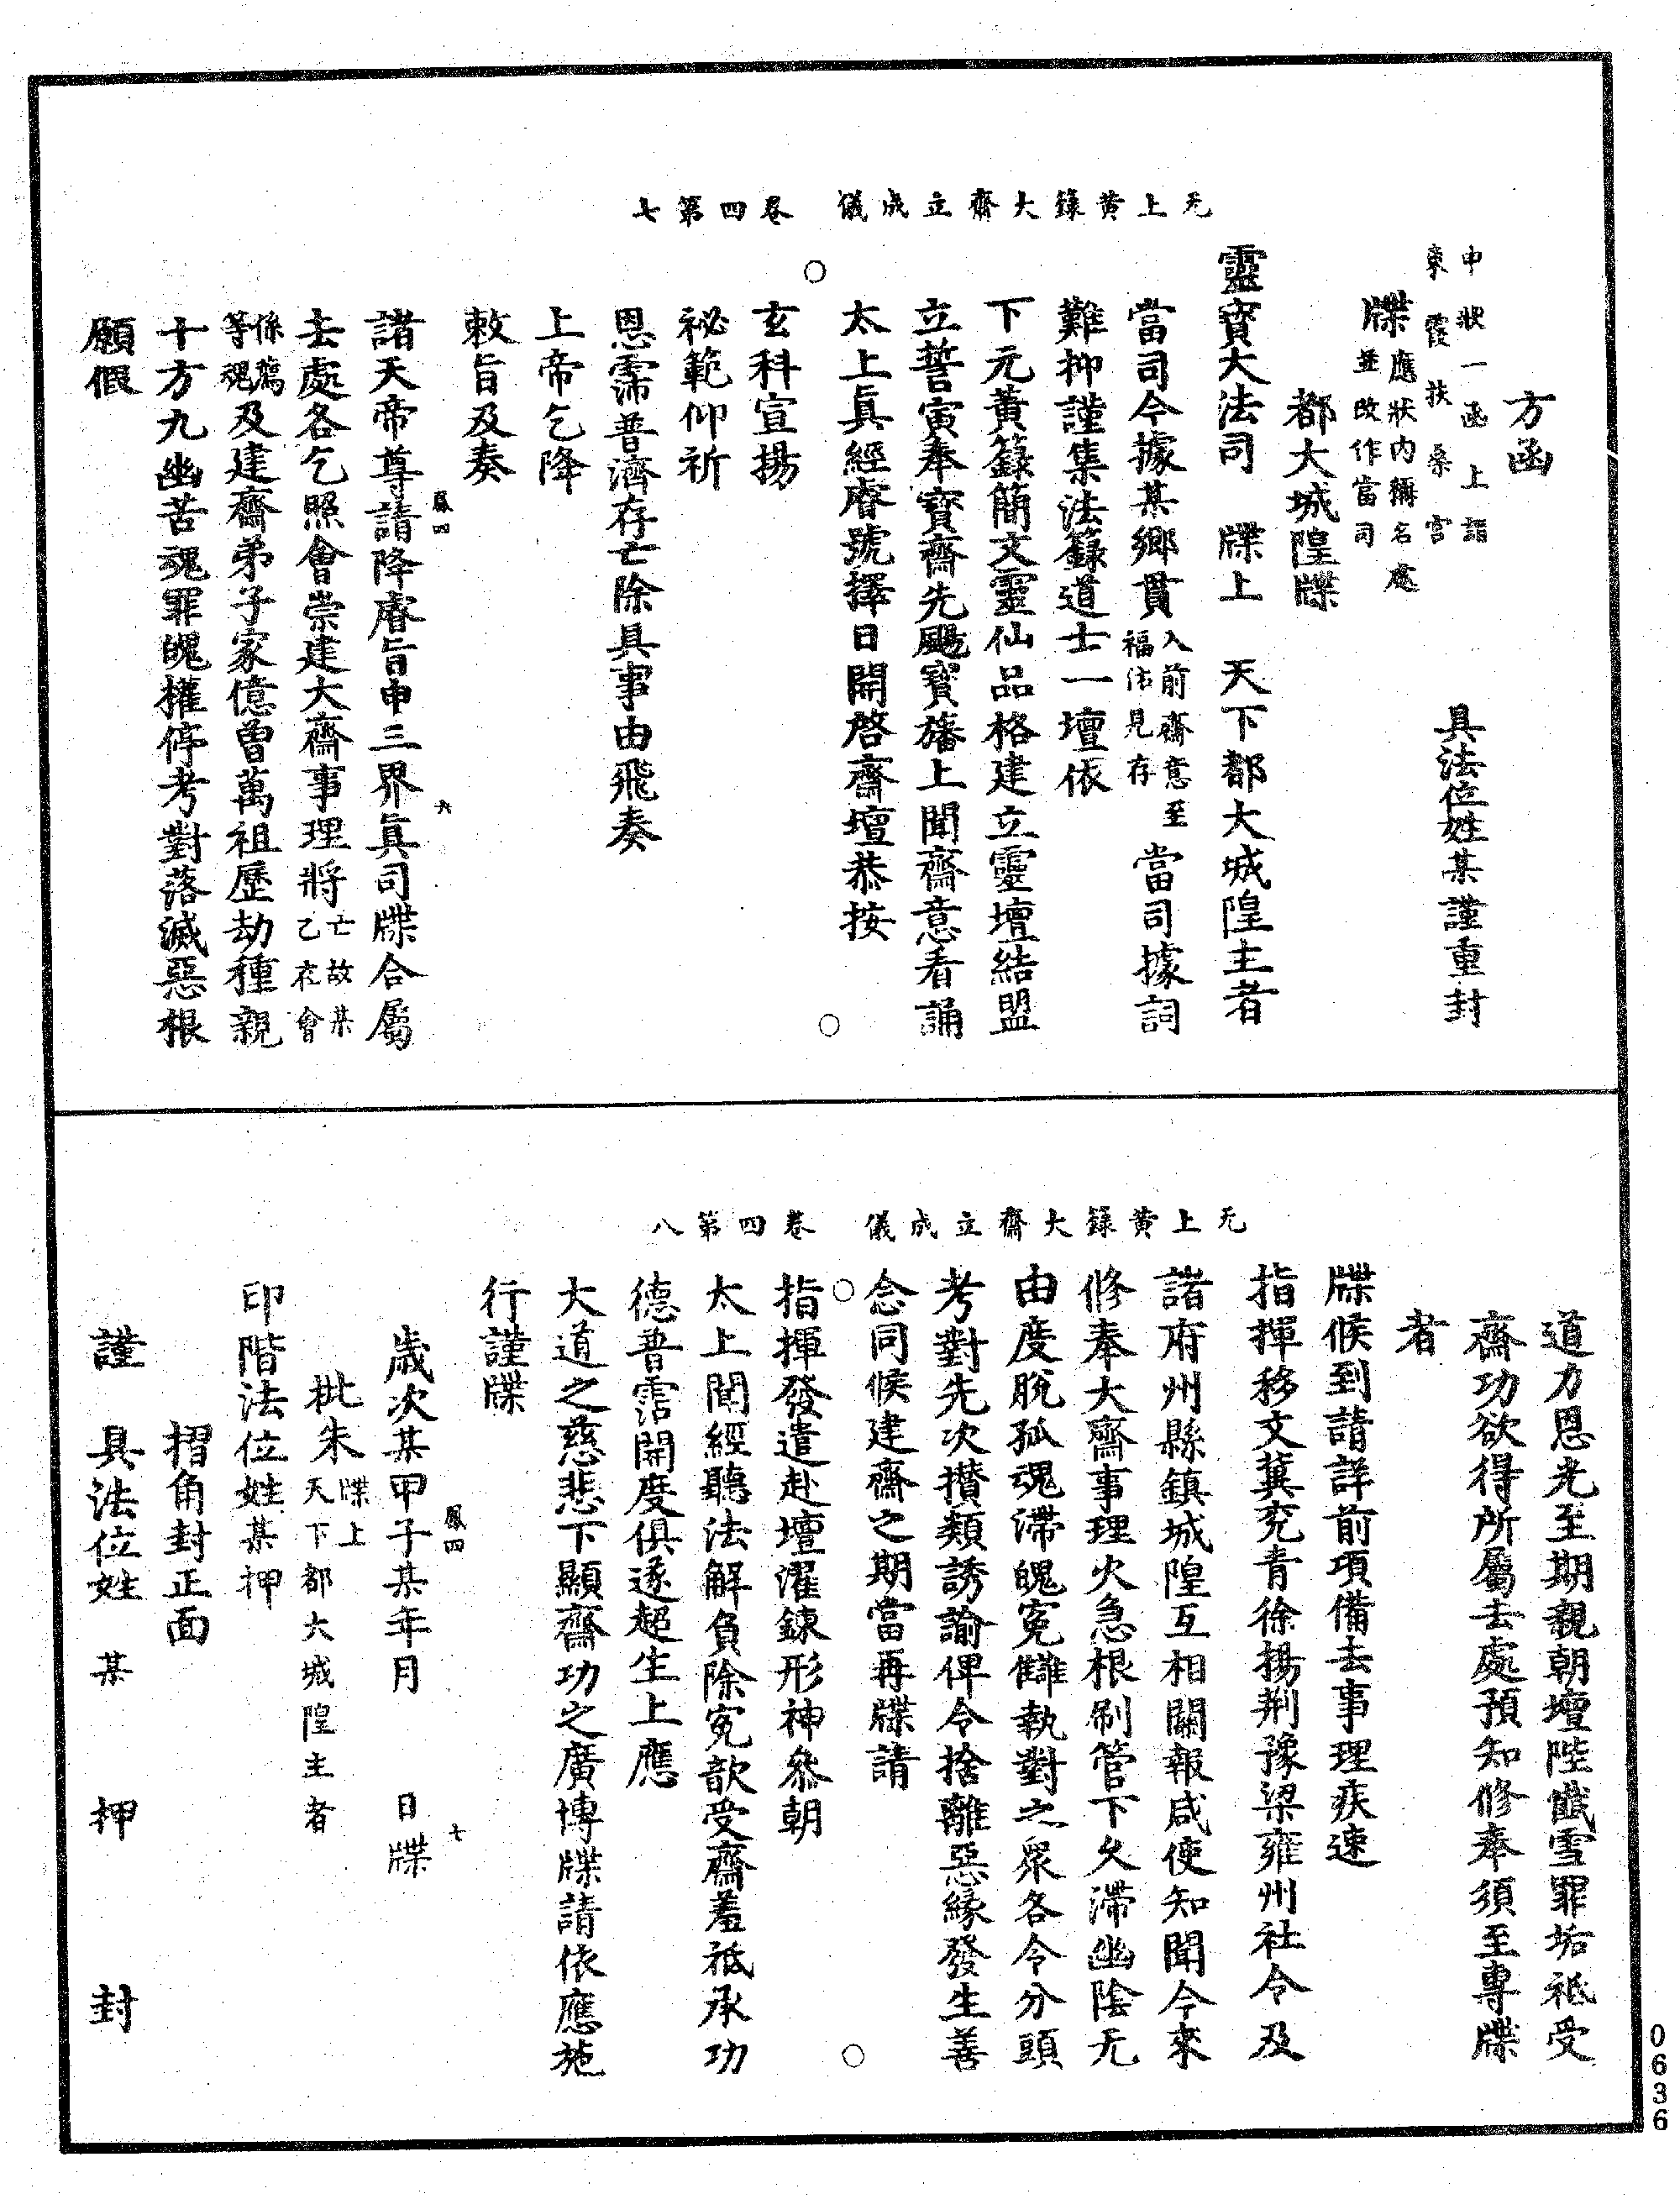 无上黄籙大齋立成儀　卷四第七
方函
申狀一函上詣
東霞扶桑宮　具法位姓某謹重封
牒應狀内稱名處並改作當司
都大城隍牒
靈寶大法司　牒上　天下都大城隍主者
當司今據某鄉貫入前齋意至福佑見存當司據詞
難抑謹集法籙道士一壇依
下元黃籙簡文靈仙品格建立靈壇結盟
立誓寅奉寶齋先颺寶旛上聞齋意看誦
太上眞經睿號擇日開啓齋壇恭按
玄科宣揚
祕範仰祈
恩霈普濟存亡除具事由飛奏
上帝乞降
敕旨及奏
諸天帝尊請降睿旨申三界眞司牒合屬
去處各乞照會崇建大齋事理將亡故某乙衣會
係薦等魂及建齋弟子家億曾萬祖歷劫種親
十方九幽苦魂罪魄權停考對落滅惡根
願假
鳳四
六
无上黄籙大齋立成儀　卷四第八
道力恩光至期親朝壇陛懺雪罪垢祇受
齋功欲得所屬去處預知修奉須至專牒
者
牒候到請詳前項備去事理疾速
指揮移文冀兖青徐揚荆豫梁雍州社令及
諸府州縣鎮城隍互相關報咸使知聞今來
修奉大齋事理火急根刷管下久滯幽陰无
由度脫孤魂滯魄冤讎執對之衆各令分頭
考對先次攢類誘諭俾令捨離惡緣發生善
念同候建齋之期當再牒請
指揮發遣赴壇濯鍊形神叅朝
太上聞經聽法解負除冤歆受齋羞祇承功
德普霑開度俱遂超生上應
大道之慈悲下顯齋功之廣博牒請依應施
行謹牒
歲次某甲子某年月　日牒
批朱牒上天下都大城隍主者
印階法位姓某押
摺角封正面
謹　具法位姓　某　押　封
鳳四
七
0636